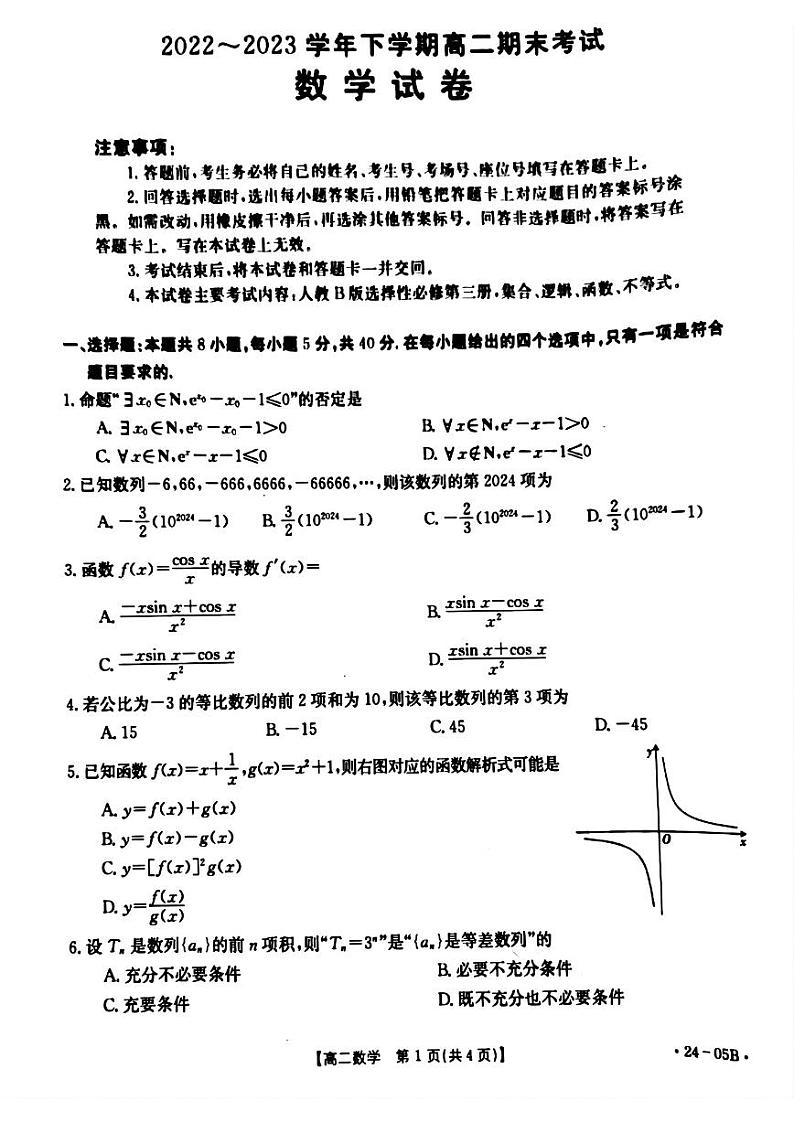 2022～2023 学年下学期高二期末考试
数学试卷
注意事项：
1. 答题前，考生务必将自己的姓名、考生号、考场号、座位号填写在答题卡上。
2. 回答选择题时，选出每小题答案后，用铅笔把答题卡上对应题目的答案标号涂
黑。如需改动，用橡皮擦干净后，再选涂其他答案标号。回答非选择题时，将答案写在
答题卡上。写在本试卷上无效。
3. 考试结束后，将本试卷和答题卡一并交回。
4. 本试卷主要考试内容：人教 B 版选择性必修第三册，集合、逻辑、函数、不等式。
一、选择题：本题共 8 小题，每小题 5 分，共 40 分. 在每小题给出的四个选项中，只有一项是符合
题目要求的.
1. 命题“∃x₀∈N，e^{x₀}－x₀－1≤0”的否定是
A. ∃x₀∈N，e^{x₀}－x₀－1>0 B. ∀x∈N，e^x－x－1>0
C. ∀x∈N，e^x－x－1≤0 D. ∀x∉N，e^x－x－1≤0
2. 已知数列－6，66，－666，6666，－66666，…，则该数列的第 2024 项为
A. －3/2(10²⁰²⁴－1) B. 3/2(10²⁰²⁴－1) C. －2/3(10²⁰²⁴－1) D. 2/3(10²⁰²⁴－1)
3. 函数 f(x)=cos x/x 的导数 f′(x)=
A. (－xsin x＋cos x)/x² B. (xsin x－cos x)/x²
C. (－xsin x－cos x)/x² D. (xsin x＋cos x)/x²
4. 若公比为－3 的等比数列的前 2 项和为 10，则该等比数列的第 3 项为
A. 15 B. －15 C. 45 D. －45
5. 已知函数 f(x)=x＋1/x，g(x)=x²＋1，则右图对应的函数解析式可能是
A. y=f(x)＋g(x)
B. y=f(x)－g(x)
C. y=[f(x)]²g(x)
D. y=f(x)/g(x)
y
O
x
6. 设 Tₙ 是数列{aₙ}的前 n 项积，则“Tₙ=3ⁿ”是“{aₙ}是等差数列”的
A. 充分不必要条件 B. 必要不充分条件
C. 充要条件 D. 既不充分也不必要条件
【高二数学 第 1 页(共 4 页)】 ·24－05B·